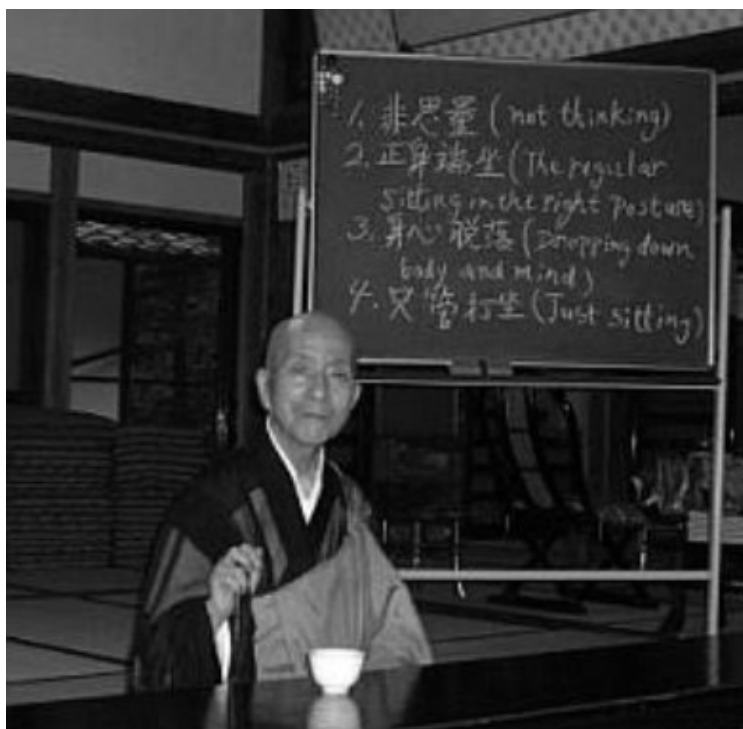 1. 非思量 (not thinking)
2. 正身端坐 (The regular
sitting in the right posture)
3. 身心脱落 (Dropping down
body and mind)
4. 只管打坐 (Just sitting)